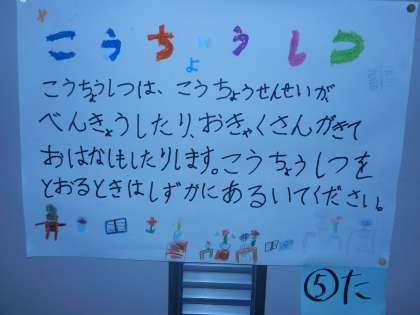 こうちょうしつ
こうちょうしつは、こうちょうせんせいが、
べんきょうしたり、おきゃくさんがきて
おはなしもしたりします。こうちょうしつを
とおるときはしずかにあるいてください。
⑤た